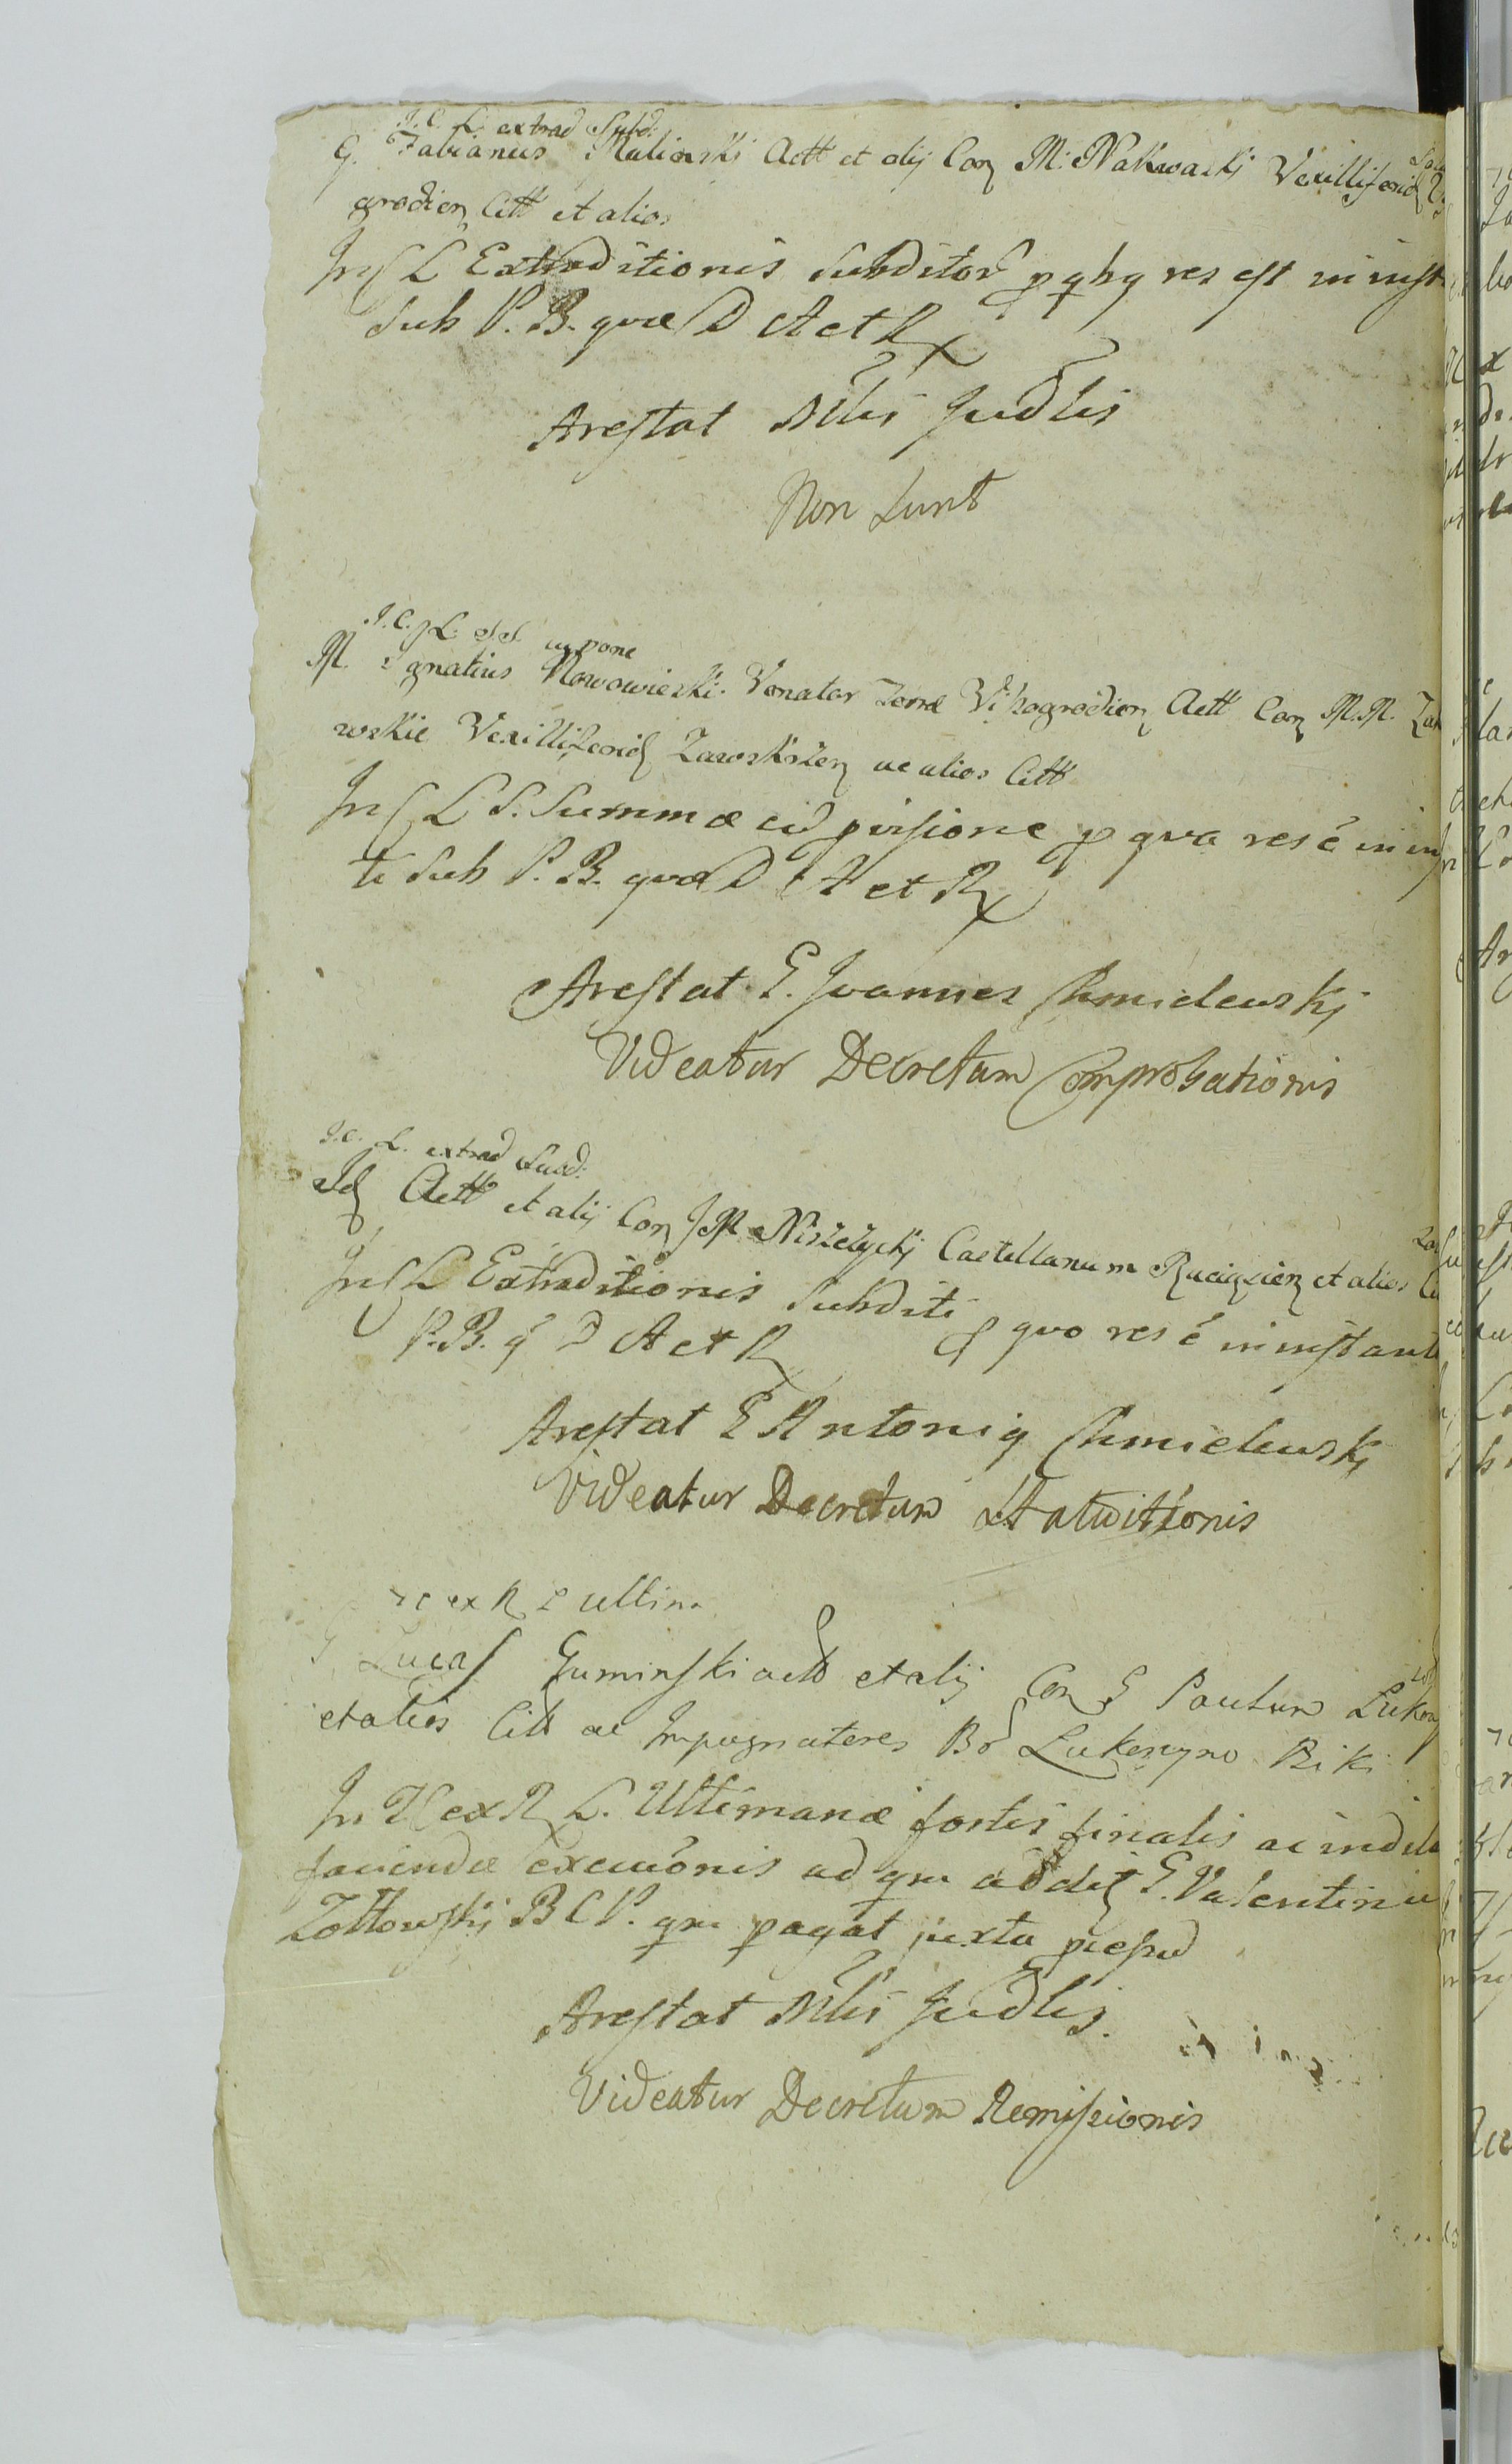 J. C. L. extrad Subd:
G. Fabianus Malinski Actt et alij Con M. Nakwaski Vexilliferid
grodien Citt et alios
In L Extraditionis Subditor p qbq res est in inst
Sub P. B. quæ D A et R
Arestat Mlis Judlis
Non sunt
J. C. L. S. S. cu pone
M. Ignatius Nowowieski Venator Terræ Vissogrodien Actt Con M. M.
wskie Vexilliferid Zawskrzen ac alios Citt
In L S. Summæ cu pvisione p qva res é in in
te Sub P. B. quæ D A et R
Arestat G. Joannes Chmielewskj
Videatur Decretum Comprobationis
J. C. L. extrad Subd:
Id Actt et alij Con J M Niszczyckj Castellanum Raciązien et alios
In L Extraditionis Subditi p quo res é in instant
P. B. q D A et R
Arestat G Antoniq Chmielewskj
Videatur Decretum Statuitionis
ex R L ultim
G Lucas Guminski actt et alij Con G Paulum
et alios Citt ac Impugnatores Bo Lukoszyno Biki
In ex R L. Ultimanæ fortis finalis ac indila
faciendæ exeuōnis ad qm addit G. Valentinu
Zottowskj B C P. qm pagat juxta
Arestat Mlis Judlis.
Videatur Decretum Remissionis